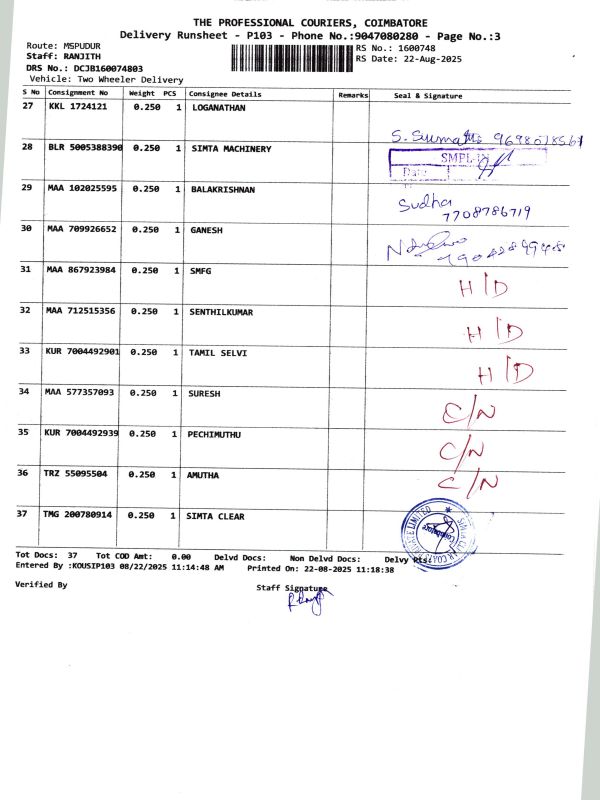 THE PROFESSIONAL COURIERS, COIMBATORE
Delivery Runsheet - P103 - Phone No.:9047080280 - Page No.:3
Route: MSPUDUR
RS No.: 1600748
Staff: RANJITH
RS Date: 22-Aug-2025
DRS No.: DCJB160074803
Vehicle: Two Wheeler Delivery
S No Consignment No Weight PCS Consignee Details Remarks Seal & Signature
27 KKL 1724121 0.250 1 LOGANATHAN
9698018567
28 BLR 5005388390 0.250 1 SIMTA MACHINERY
SMPL
Date
29 MAA 102025595 0.250 1 BALAKRISHNAN
Sudha
7708786719
30 MAA 709926652 0.250 1 GANESH
31 MAA 867923984 0.250 1 SMFG H/D
32 MAA 712515356 0.250 1 SENTHILKUMAR H/D
33 KUR 7004492901 0.250 1 TAMIL SELVI H/D
34 MAA 577357093 0.250 1 SURESH C/N
35 KUR 7004492939 0.250 1 PECHIMUTHU C/N
36 TRZ 55095504 0.250 1 AMUTHA C/N
37 TMG 200780914 0.250 1 SIMTA CLEAR
Tot Docs: 37 Tot COD Amt: 0.00 Delvd Docs: Non Delvd Docs: Delvy Pts:
Entered By :KOUSIP103 08/22/2025 11:14:48 AM Printed On: 22-08-2025 11:18:38
Verified By
Staff Signature